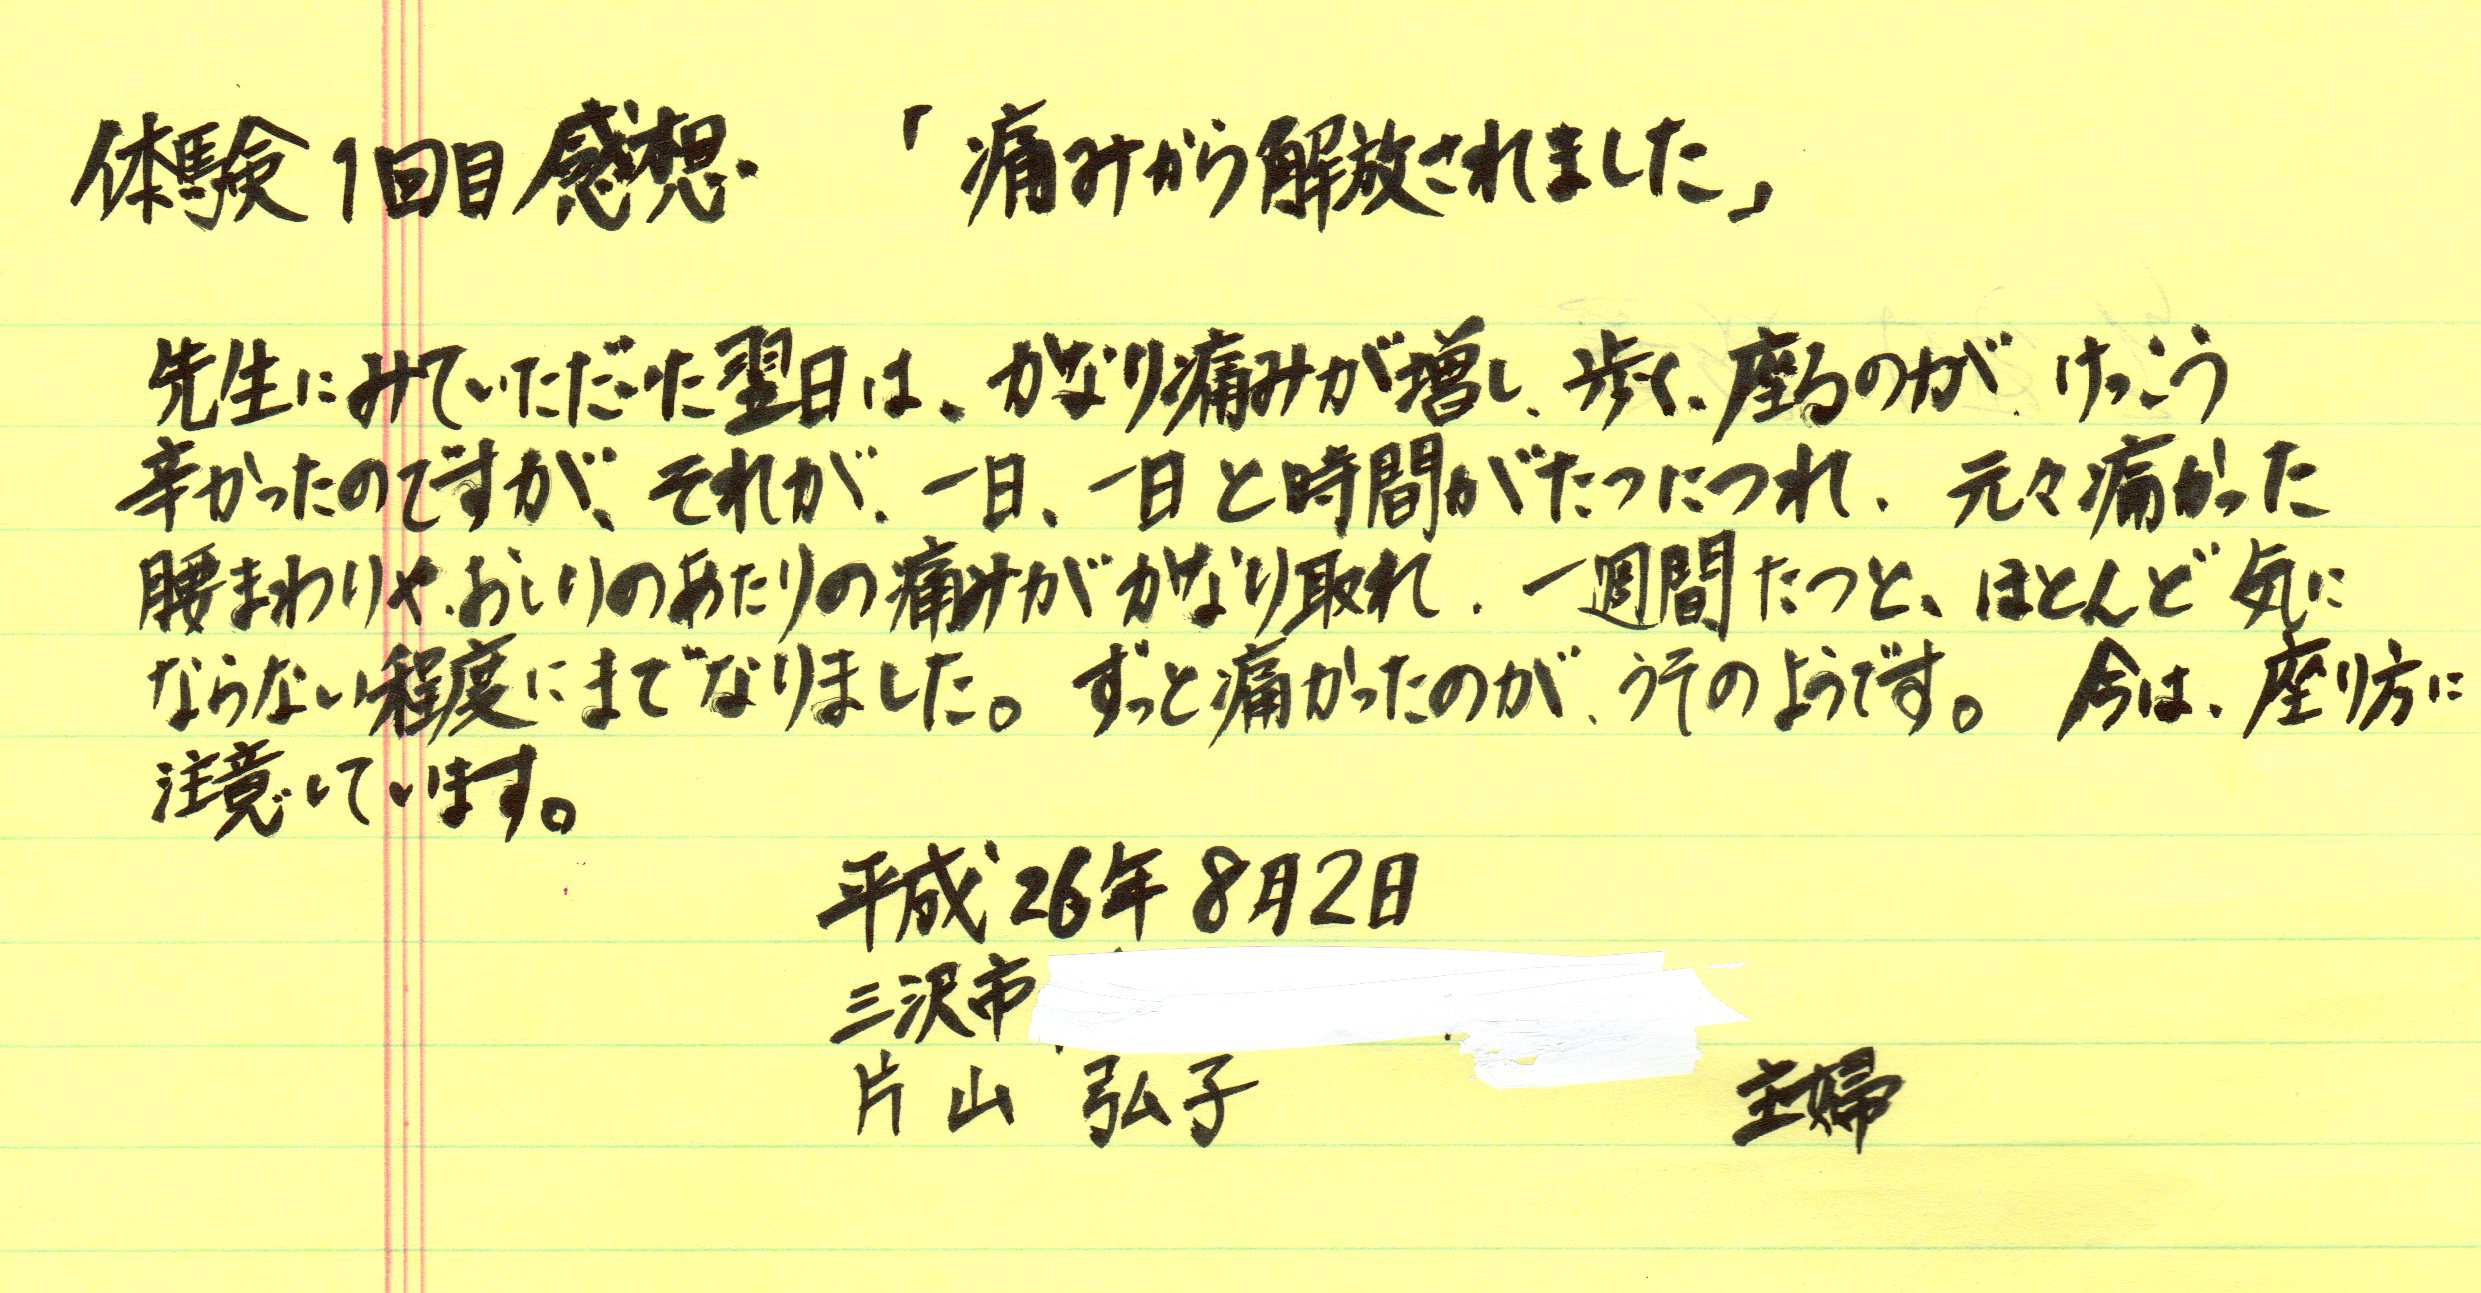 体験1回目感想. 「痛みから解放されました」
先生にみていただいた翌日は、かなり痛みが増し、歩く、座るのが、けっこう
辛かったのですが、それが、一日、一日と時間がたつにつれ、元々痛かった
腰まわりや、おしりのあたりの痛みがかなり取れ、一週間たつと、ほとんど気に
ならない程度にまでなりました。ずっと痛かったのが、うそのようです。今は、座り方に
注意しています。
平成26年8月2日
三沢市
片山 弘子 主婦